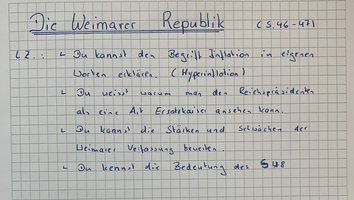 Die Weimarer Republik (S. 46-47)
LZ.: - Du kannst den Begriff Inflation in eigenen
Worten erklären. (Hyperinflation)
- Du weisst warum man den Reichspräsidenten
als eine Art Ersatzkaiser ansehen kann.
- Du kannst die Stärken und Schwächen der
Weimarer Verfassung
- Du kennst die Bedeutung des § 48